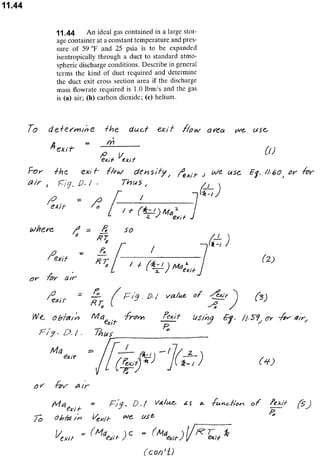 11.44
11.44 An ideal gas contained in a large stor-
age container at a constant temperature and pres-
sure of 59 °F and 25 psia is to be expanded
isentropically through a duct to standard atmo-
spheric discharge conditions. Describe in general
terms the kind of duct required and determine
the duct exit cross section area if the discharge
mass flowrate required is 1.0 lbm/s and the gas
is (a) air; (b) carbon dioxide; (c) helium.
To determine the duct exit flow area we use
A exit = ṁ / ρexit Vexit (1)
For the exit flow density, ρexit, we use Eq. 11.60, or for
air, Fig. D.1. Thus,
ρexit = ρo [ 1 / 1 + (k-1/2) Ma²exit ]^(1/k-1)
where ρo = Po / RTo so
ρexit = Po / RTo [ 1 / 1 + (k-1/2) Ma²exit ]^(1/k-1) (2)
or for air
ρexit = Po / RTo ( Fig. D.1 value of ρexit / ρo ) (3)
We obtain Ma exit from Pexit / Po using Eq. 11.59, or for air,
Fig. D.1. Thus
Ma exit = √{[ 1 / (Pexit / Po)^(k-1/k) - 1 ] ( 2 / k-1 )} (4)
or for air
Ma exit = Fig. D.1 value as a function of Pexit / Po (5)
To obtain Vexit we use
Vexit = (Ma exit) c = (Ma exit) √R Texit k
(con't)